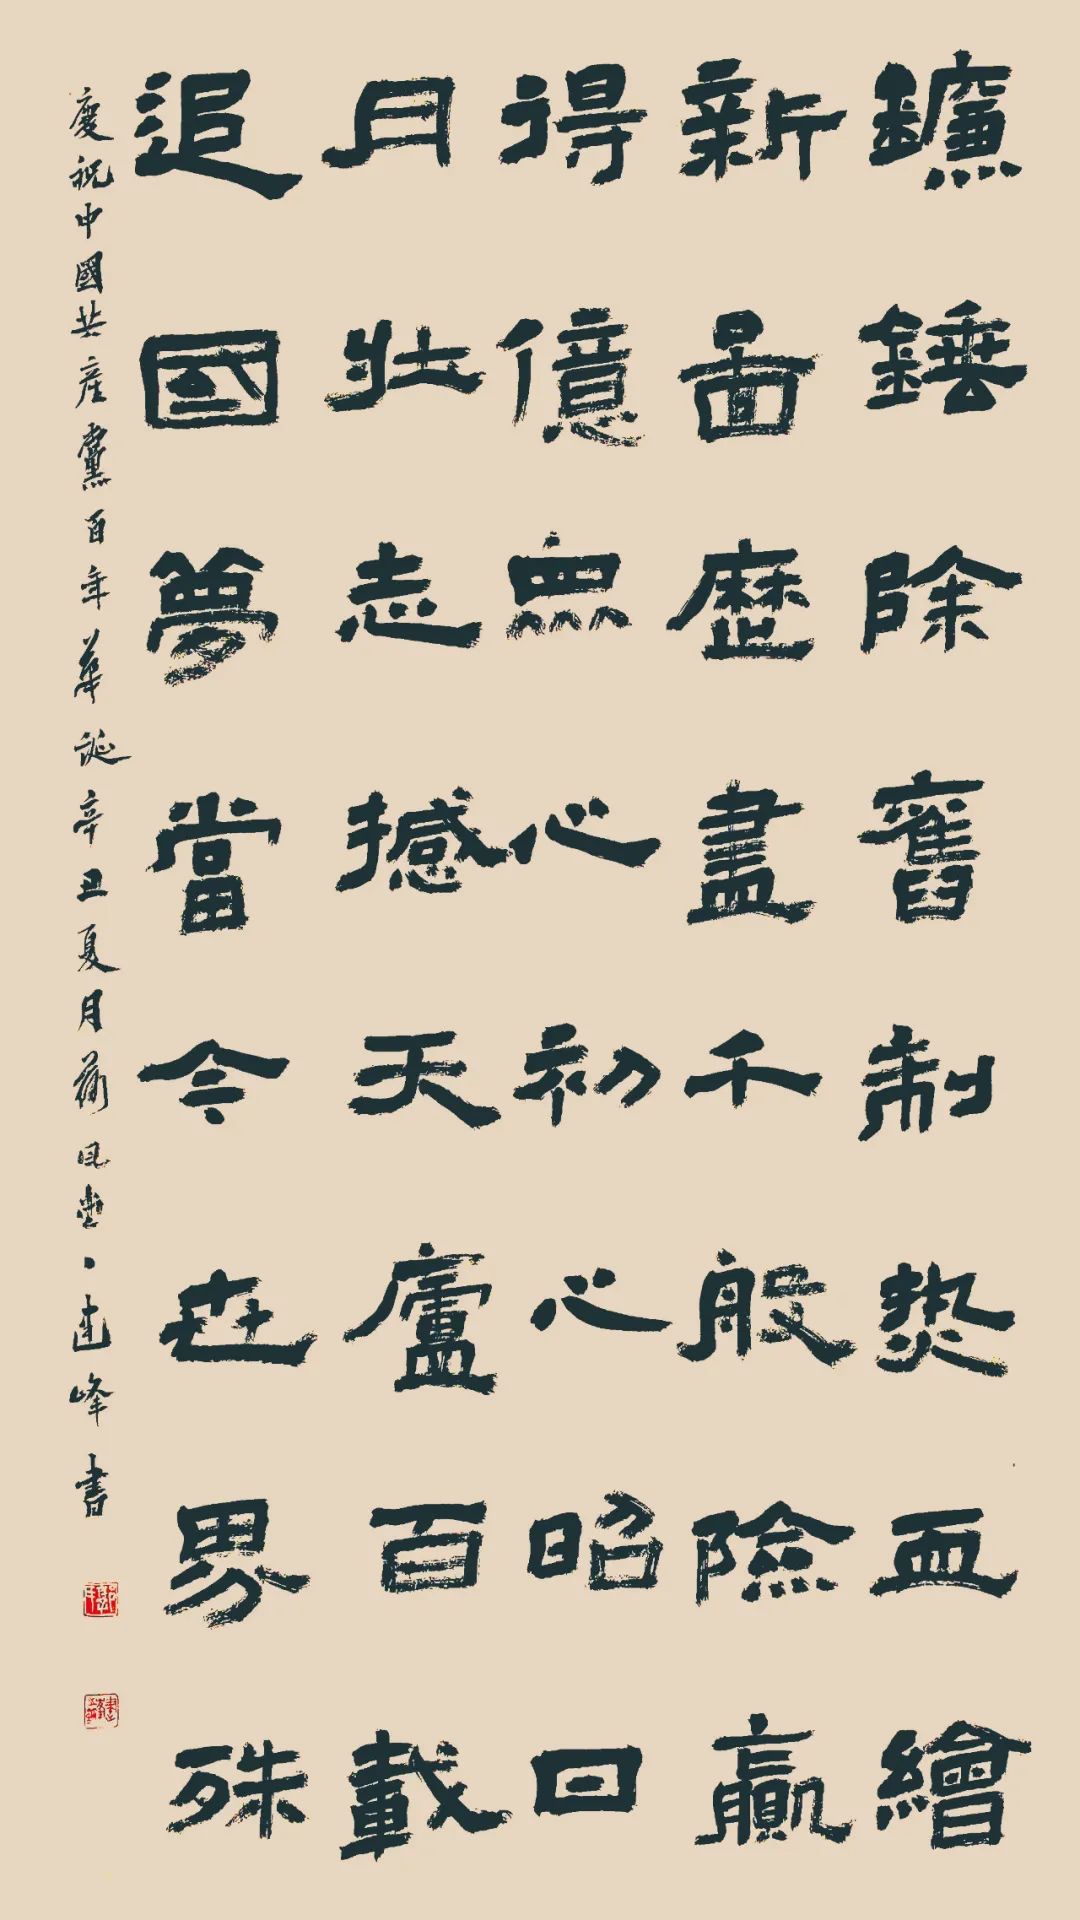 鐮錘除舊制热血繪
新啚歷盡千般險贏
得億眾心初心昭日
月壮志撼天廬百載
追國夢當令世界殊
慶祝中國共產黨百年華誕辛丑夏月
建峰書